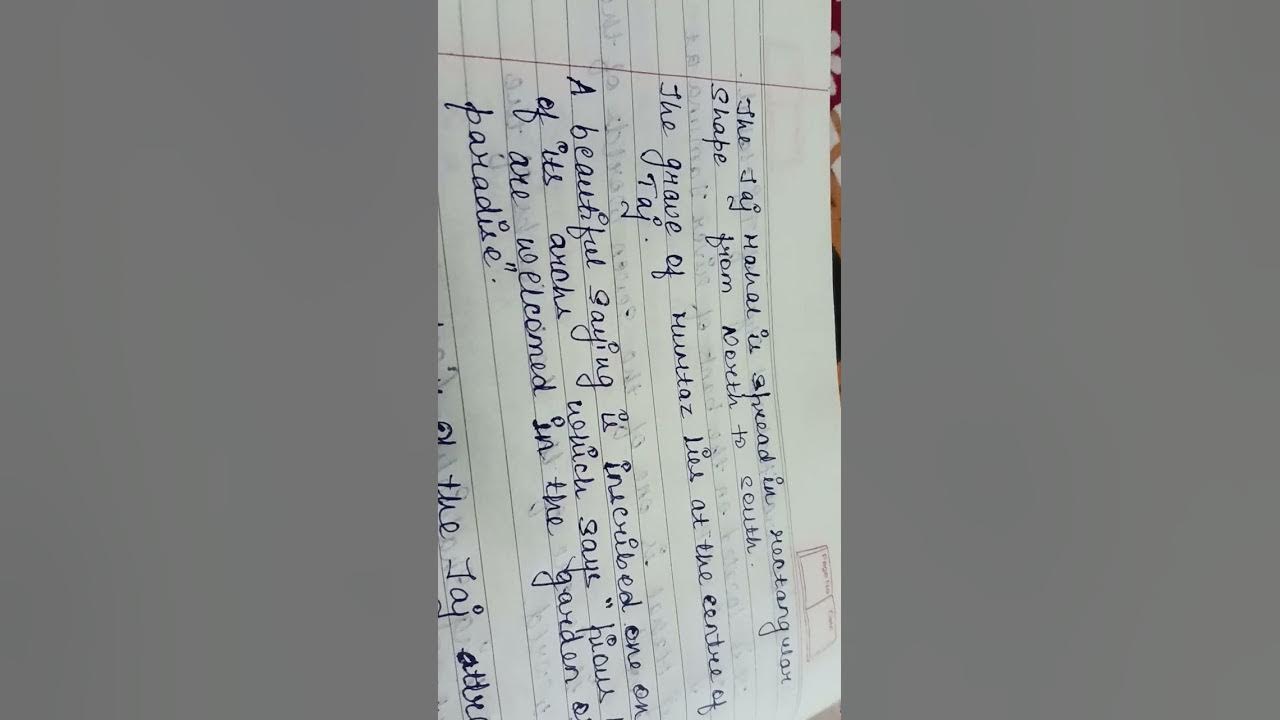 Page No.
Date
The Taj Mahal is spread in rectangular
shape from North to south.
The grave of Mumtaz lies at the centre of
Taj.
A beautiful saying is inscribed one on
of its arch which says "pious
are welcomed in the garden of
paradise".
the Taj attra